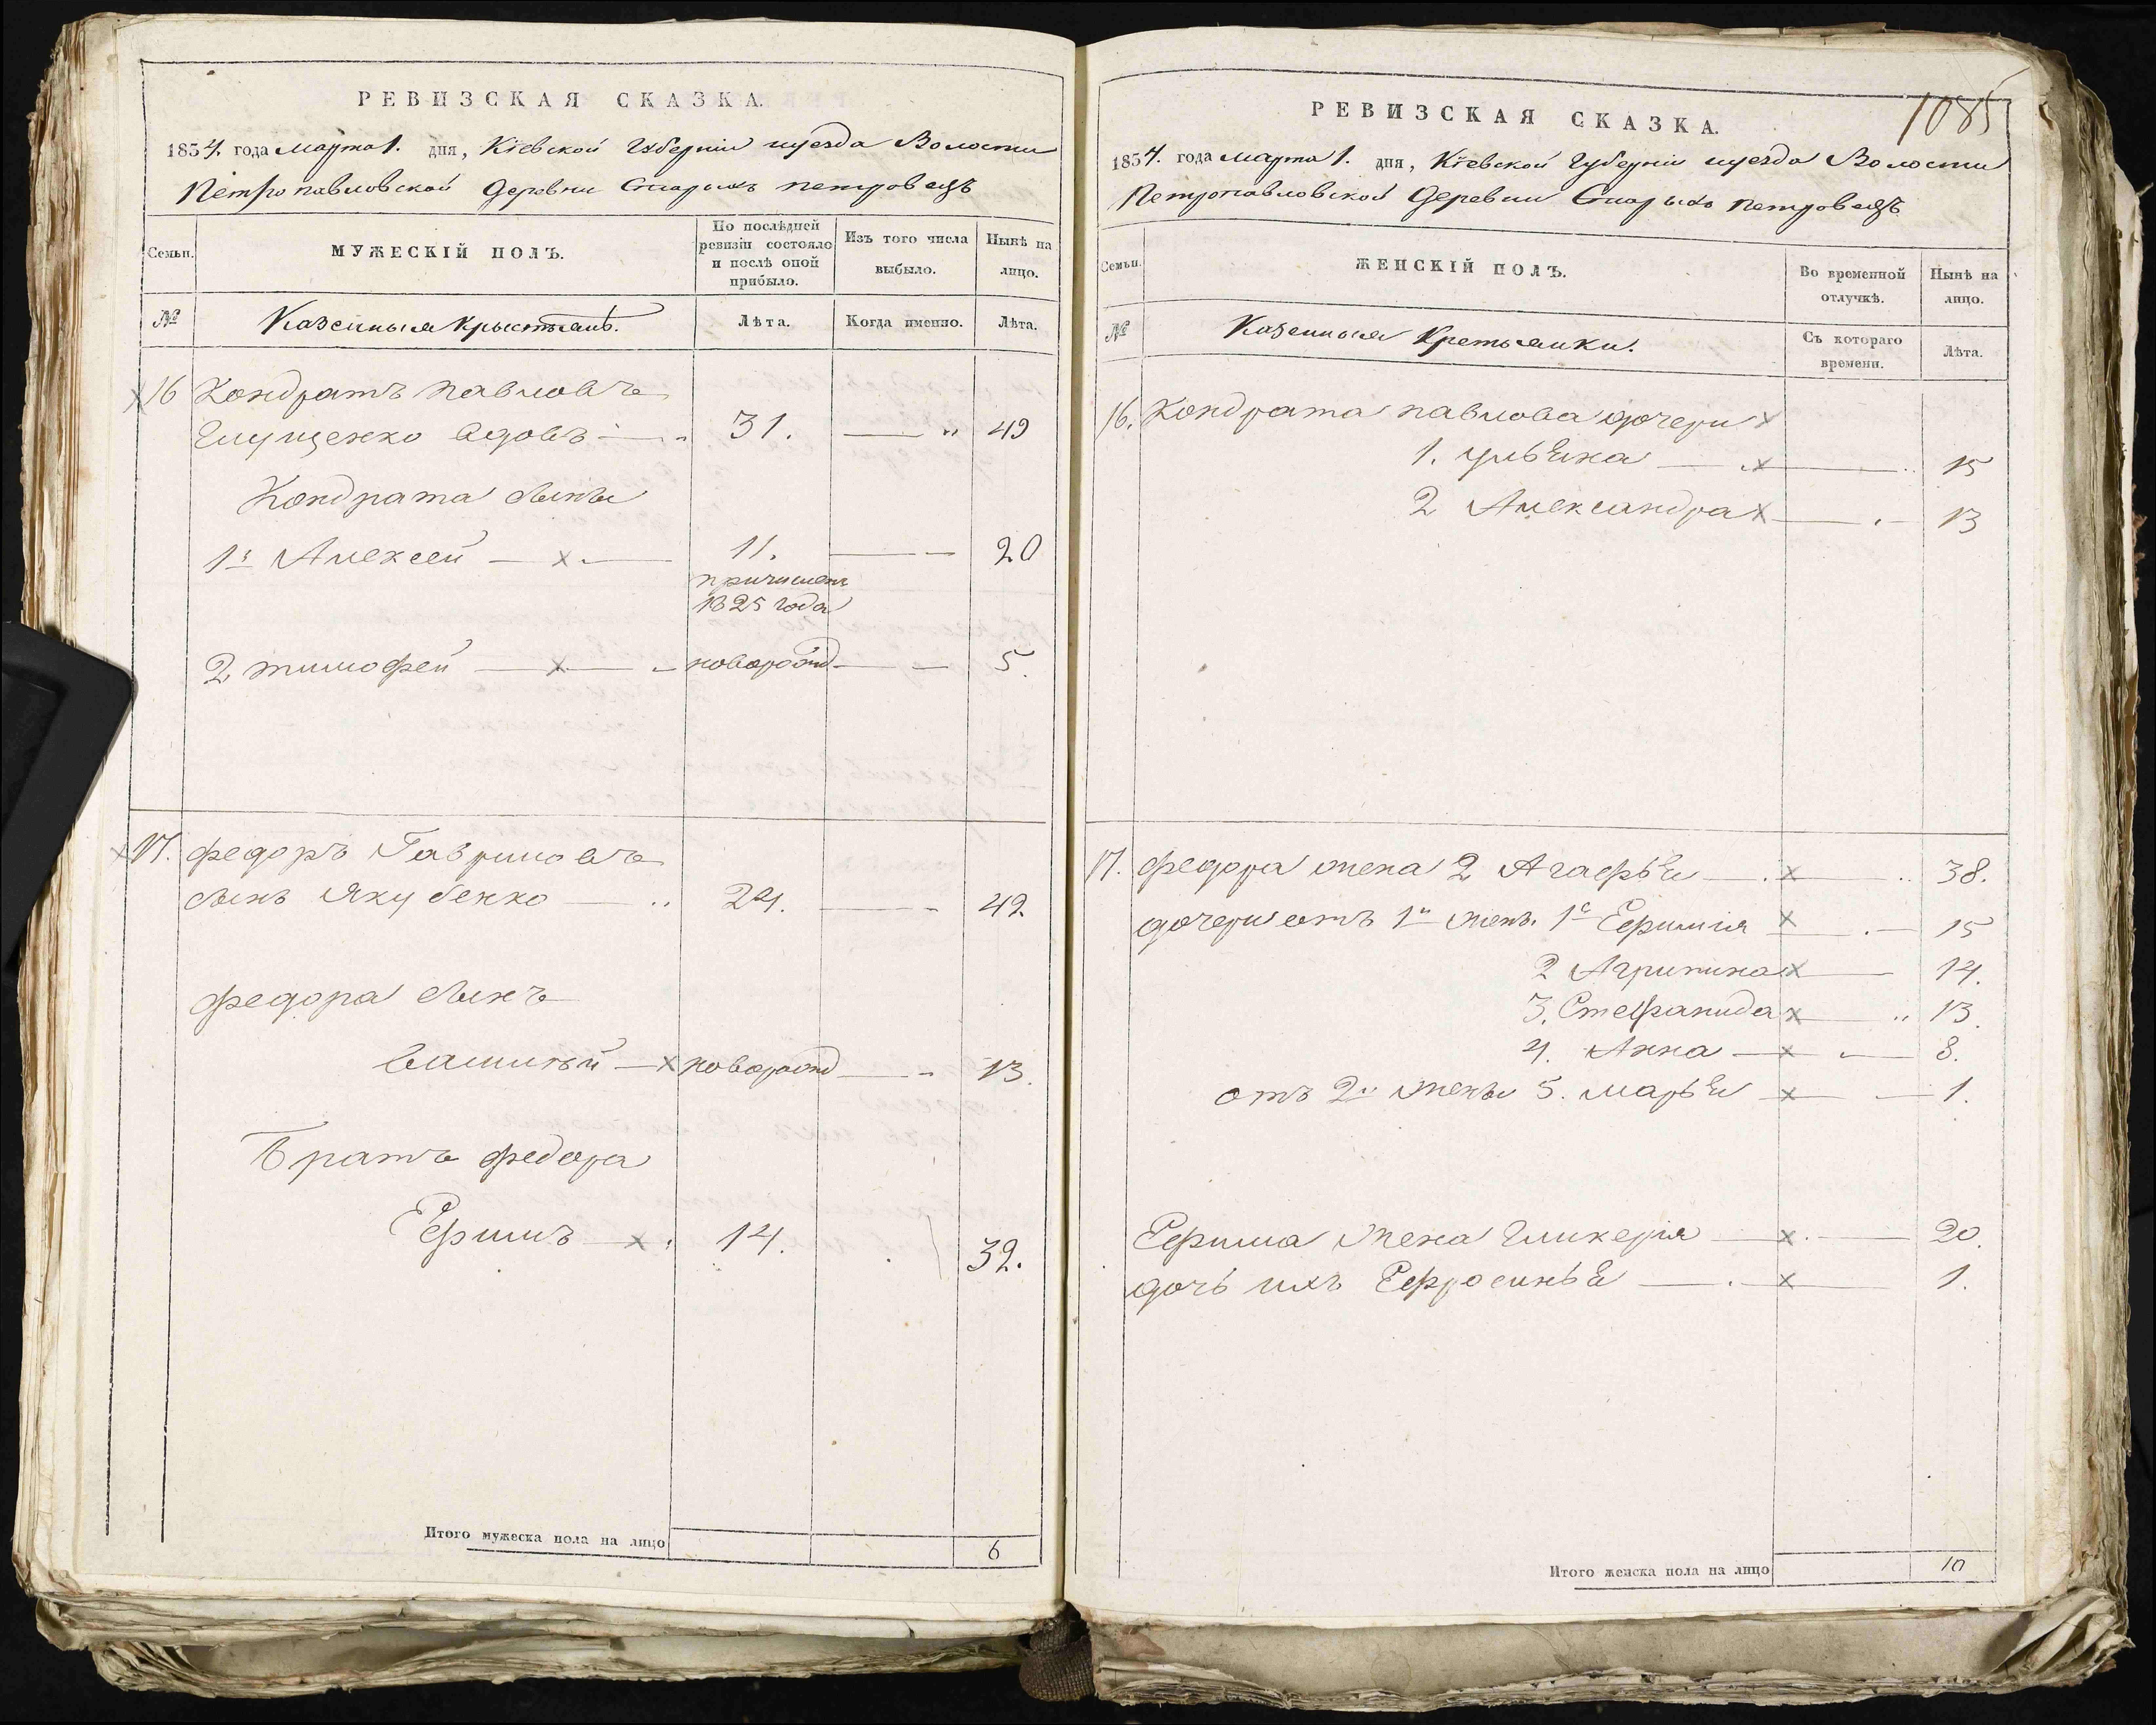 РЕВИЗСКАЯ СКАЗКА.
1834. года Марта 1. дня, Кіевской Губерніи уезда Волости
Петропавловской деревни Старыхъ петровецъ
Семьи.
МУЖЕСКІЙ ПОЛЪ.
По послѣдней ревизіи состояло и послѣ оной прибыло.
Изъ того числа выбыло.
Нынѣ на лицо.
№
Казенныя
Лѣта.
Когда именно.
Лѣта.
16 Кондратъ павловъ
вдовъ 31. 49
Кондрата сыны
1й Алексей 11. 20
причислен
1825 года
2 тимофей новорожд 5.
17. федоръ Гавриловъ
сынъ Якубенко 24. 42.
федора сынъ
василій новорожд 13.
Братъ федора
Ефимъ 14. 32.
Итого мужеска пола на лицо 6
1085
РЕВИЗСКАЯ СКАЗКА.
1834. года марта 1. дня, Кіевской Губерніи уезда Волости
Петропавловской деревни Старыхъ петровецъ
Семьи.
ЖЕНСКІЙ ПОЛЪ.
Во временной отлучкѣ.
Нынѣ на лицо.
№
Казенныя
Съ котораго времени.
Лѣта.
16. Кондрата павлова дочери
1. 15
2 Александра 13
17. федора жена 2 Агафья 38.
дочери отъ 1й жен. 1я Ефимія 15
2 Агрипина 14.
3. Стефанида 13.
4. Анна 8.
отъ 2й жены 5. марья 1.
Ефима жена Гликерія 20.
дочь ихъ Ефросинья 1.
Итого женска пола на лицо 10